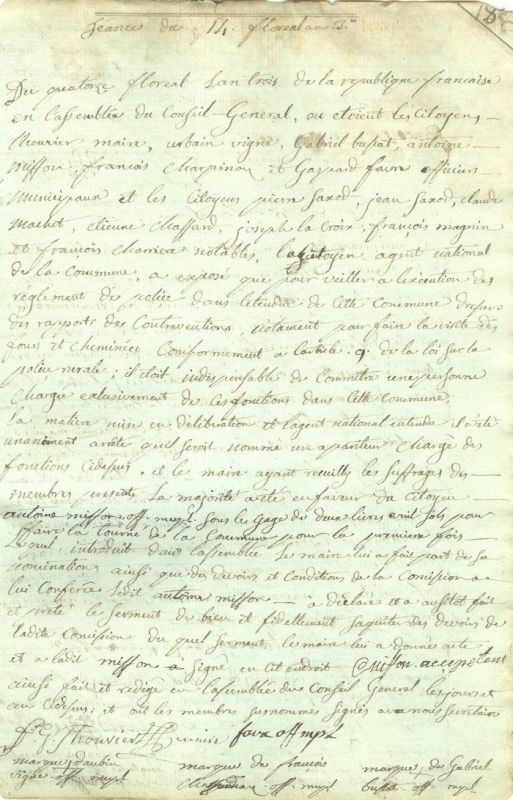 Séance du 14 florealan 3.e
Du quatorze floreal L'an trois de la republique francaise
en l'assemblée du Conseil-General, ou etoient les Citoyens
thouvier maire, urbain vigne, Gabriel bustat, antoine
misson, francois Charpinau et Gaspard favre officiers
municipaux et les Citoyens pierre saxod, jean saxod, claude
machet, etienne chaffard, joseph la croix, françois magnin
et françois Charriera notables, le Citoyen agent national
de la Commune, a exposé que pour veiller a l'execution des
reglement de police dans l'etendue de Cette Commune dresser
des rapports des Contraventions, notament pour faire la visite des
fours et cheminées Comformement a l'article 9 de la loi sur la
police rurale; il etoit indispensable de Commettre une personne
Chargé exclusivement de ces fonctions dans Cette Commune,
la matiere mise en déliberation et l'agent national entendu il a été
unaniment arrêté qu'il seroit nommé un apariteur Chargé des
fonctions Cidessus, et le maire ayant recuilly les suffrages des
membres presents, La majorité a eté en faveur du Citoyen
antoine misson off. mupl. sous le Gage de deux livres huit sols pour
faire la tourné de la Commune pour la premiere fois
Lequel, introduit dans l'assemblée Le maire lui a fait part de sa
nomination ainsi que des devoirs et Conditions de la Comission a
lui Conferée Ledit antoine misson a déclaré et a aussitôt fait
et preté le serment de bien et fidellement s'aquiter des devoirs de
ladite Comission du quel serment, le maire lui a donné acte
et a ledit misson signé en cet endroit misson acceptant
ainsi fait et redigé en l'assemblée du Conseil General les jour et
an Cidessus; et ont les membres sunommés signés avec nous Secretaire
thouvier maire favre off mpl
marque d'aubin marque de françois marque de Gabriel
vigne off. mupl off. mupl bustat off. mupl